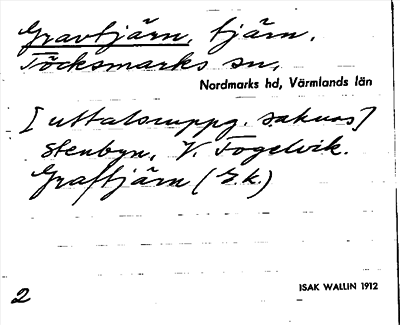 Gravtjärn, tjärn,
Töcksmarks sn,
Nordmarks hd, Värmlands län
[uttalsuppg. saknas]
Stenbyn, V. Fogelvik.
Graftjärn (E.k.)
2
ISAK WALLIN 1912